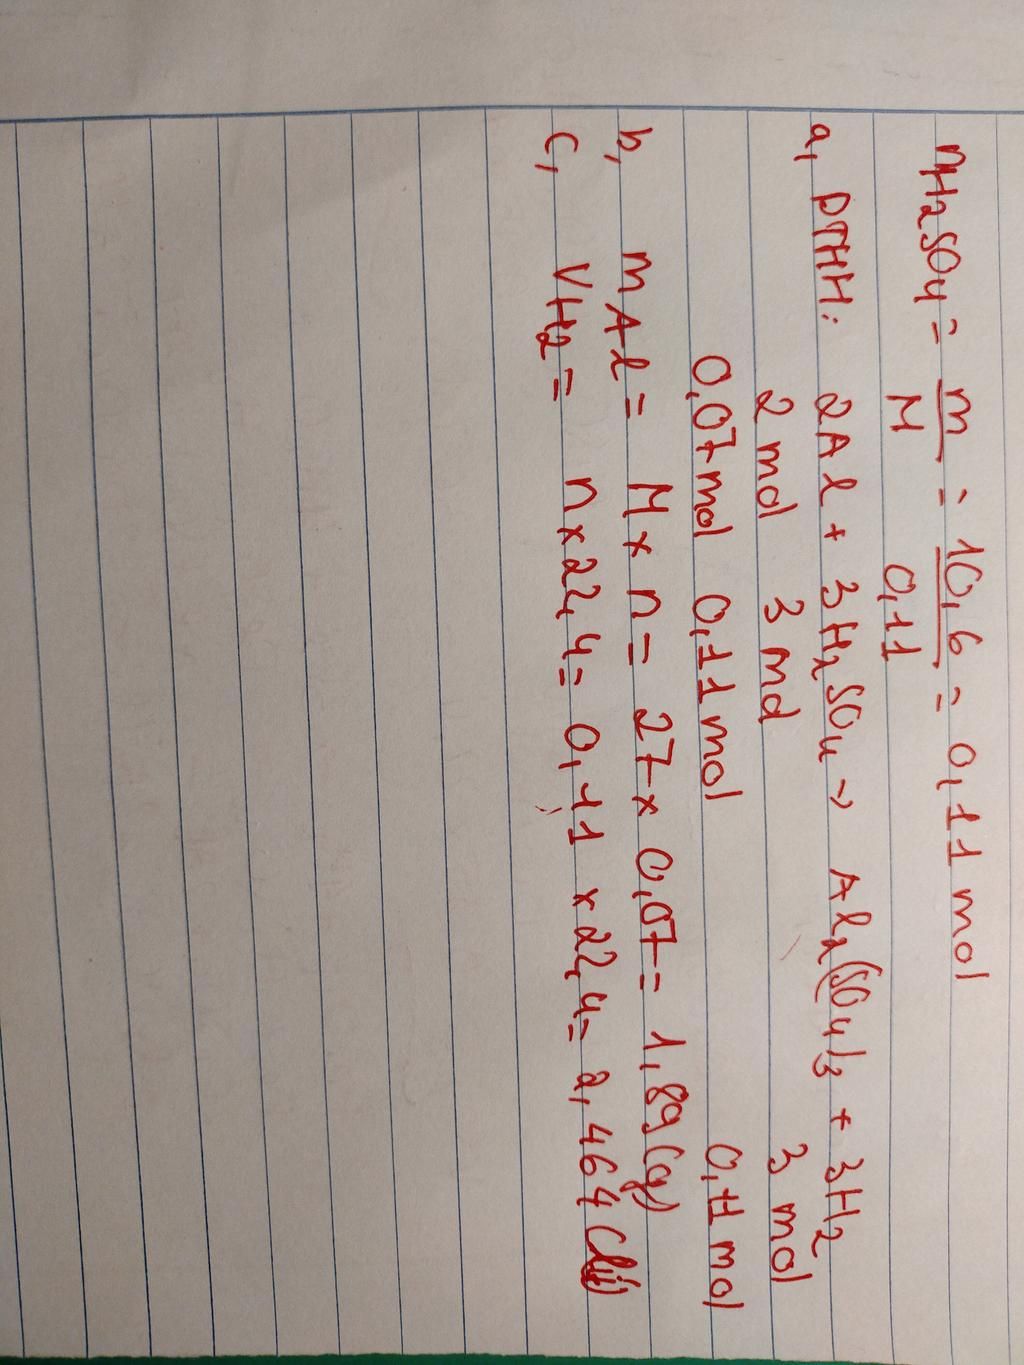 nH2SO4 = m/M = 10,6/0,11 = 0,11 mol
a, PTHH: 2Al + 3H2SO4 → Al2(SO4)3 + 3H2
2 mol 3 mol 3 mol
0,07 mol 0,11 mol 0,11 mol
b, mAl = M x n = 27 x 0,07 = 1,89 (g)
c, VH2 = n x 22,4 = 0,11 x 22,4 = 2,464 (lít)